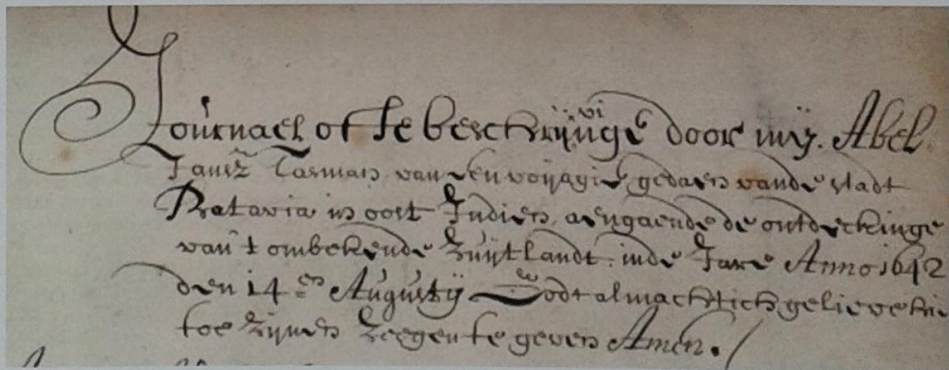 Journael ofte beschrijvinge door mij. Abel
Jansz Tasman van een voijagie gedaen vande stadt
Batavia in oost Indien, aengaende de ontdeckinge
van't ombekende Zuijtlandt. inde Jare Anno 1642
den 14en Augustij Godt almachtich gelieve hier
toe zijnen zeegen te geven Amen.